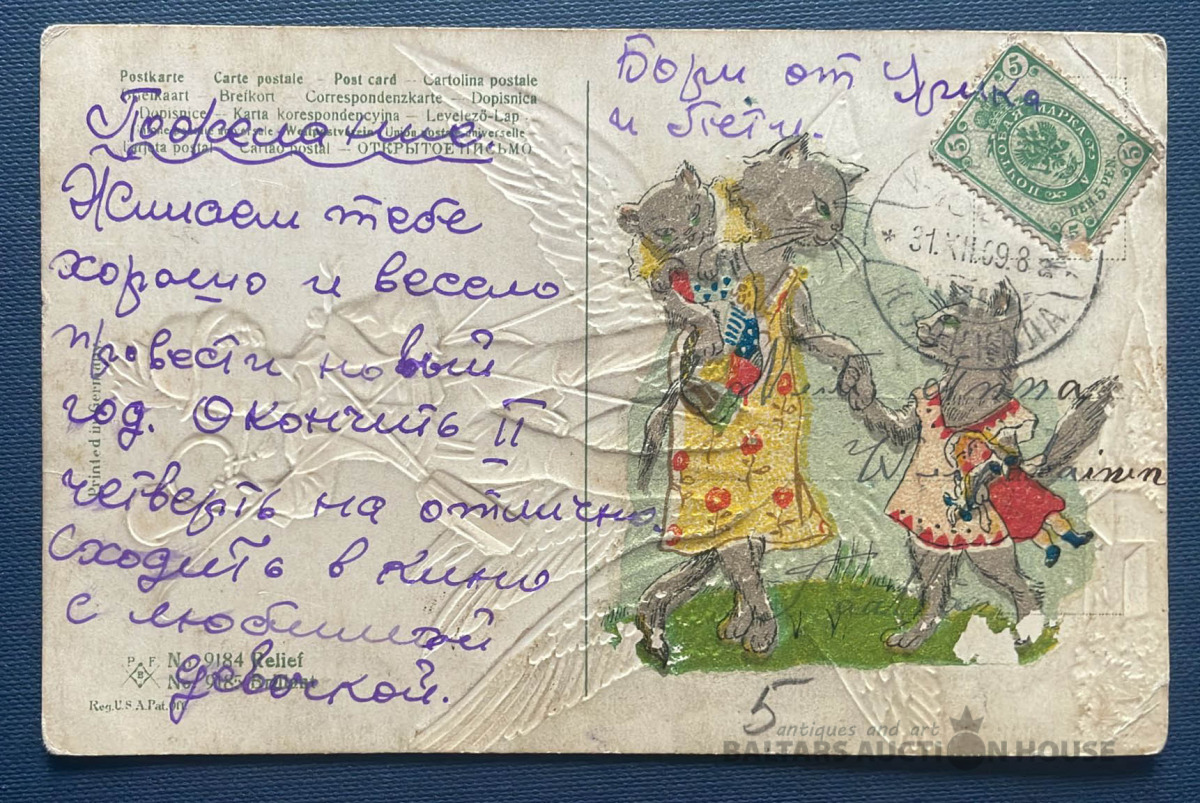 Postkarte Carte postale – Post card – Cartolina postale
Briefkaart – Brefkort Correspondenzkarte – Dopisnica
Dopisnice – Karta korespondencyjna – Levelező-Lap
Weltpostverein Union postale universelle
Tarjeta postal – Cartão postal – ОТКРЫТОЕ ПИСЬМО
Пожелание.
Желаем тебе
хорошо и весело
провести новый
год. Окончить II
четверть на отлично.
Сходить в кино
с любимой
девочкой.
Printed in Germany
P F
B
No. 9184 Relief
No. 9185 Brillant
Reg. U.S.A. Pat. Off.
Бори от Урика
и Пети.
5 5 5
ПОЧТОВАЯ МАРКА
5 ПЕН. БРЕН.
* 31.XII.09.8
5
antiques and art
BALTARS AUCTION HOUSE